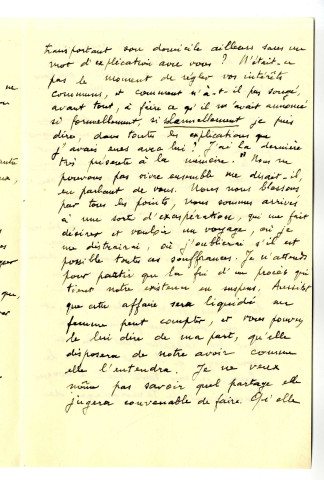 transportant son domicile ailleurs sans un
mot d'explication avec vous ? N'était-ce
pas le moment de régler vos intérêts
communs, et comment n'a-t-il pas songé,
avant tout, à faire ce qu'il m'avait annoncé
si formellement, si solennellement je puis
dire, dans toutes les explications que
j'avais eues avec lui ? J'ai la dernière
très présente à la mémoire. "Nous ne
pouvons pas vivre ensemble me disait-il,
en parlant de vous. Nous nous blessons
par tous les points, nous sommes arrivés
à une sorte d'exaspération, qui me fait
désirer et vouloir un voyage, où je
me distrairai, où j'oublierai s'il est
possible toutes ces souffrances. Je n'attends
pour partir que la fin d'un procès qui
tient notre existence en suspens. Aussitôt
que cette affaire sera liquidée ma
femme peut compter, et vous pouvez
le lui dire de ma part, qu'elle
disposera de notre avoir comme
elle l'entendra. Je ne veux
même pas savoir quel partage elle
jugera convenable de faire. Qu'elle